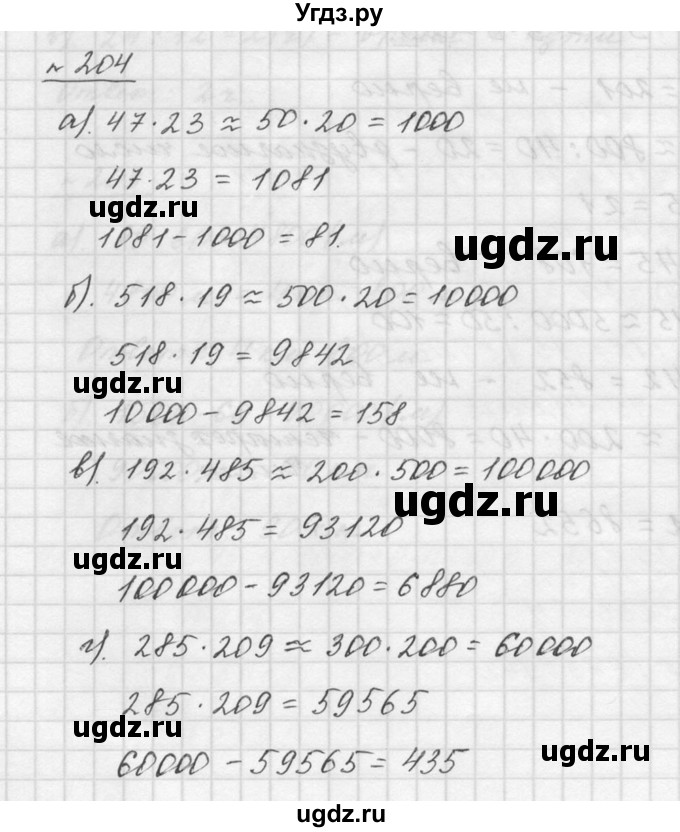 Угдз.ру
№ 204
а). 47·23 ≈ 50·20 = 1000
47·23 = 1081
ugdz.ru
1081-1000 = 81.
ugdz.ru
б). 518·19 ≈ 500·20 = 10000
518·19 = 9842
ugdz.ru
10000-9842 = 158
в). 192·485 ≈ 200·500 = 100000
ugdz.ru
192·485 = 93120
ugdz.ru
100000-93120 = 6880
г). 285·209 ≈ 300·200 = 60000
285·209 = 59565
ugdz.ru
60000-59565 = 435
ugdz.ru
ugdz.ru